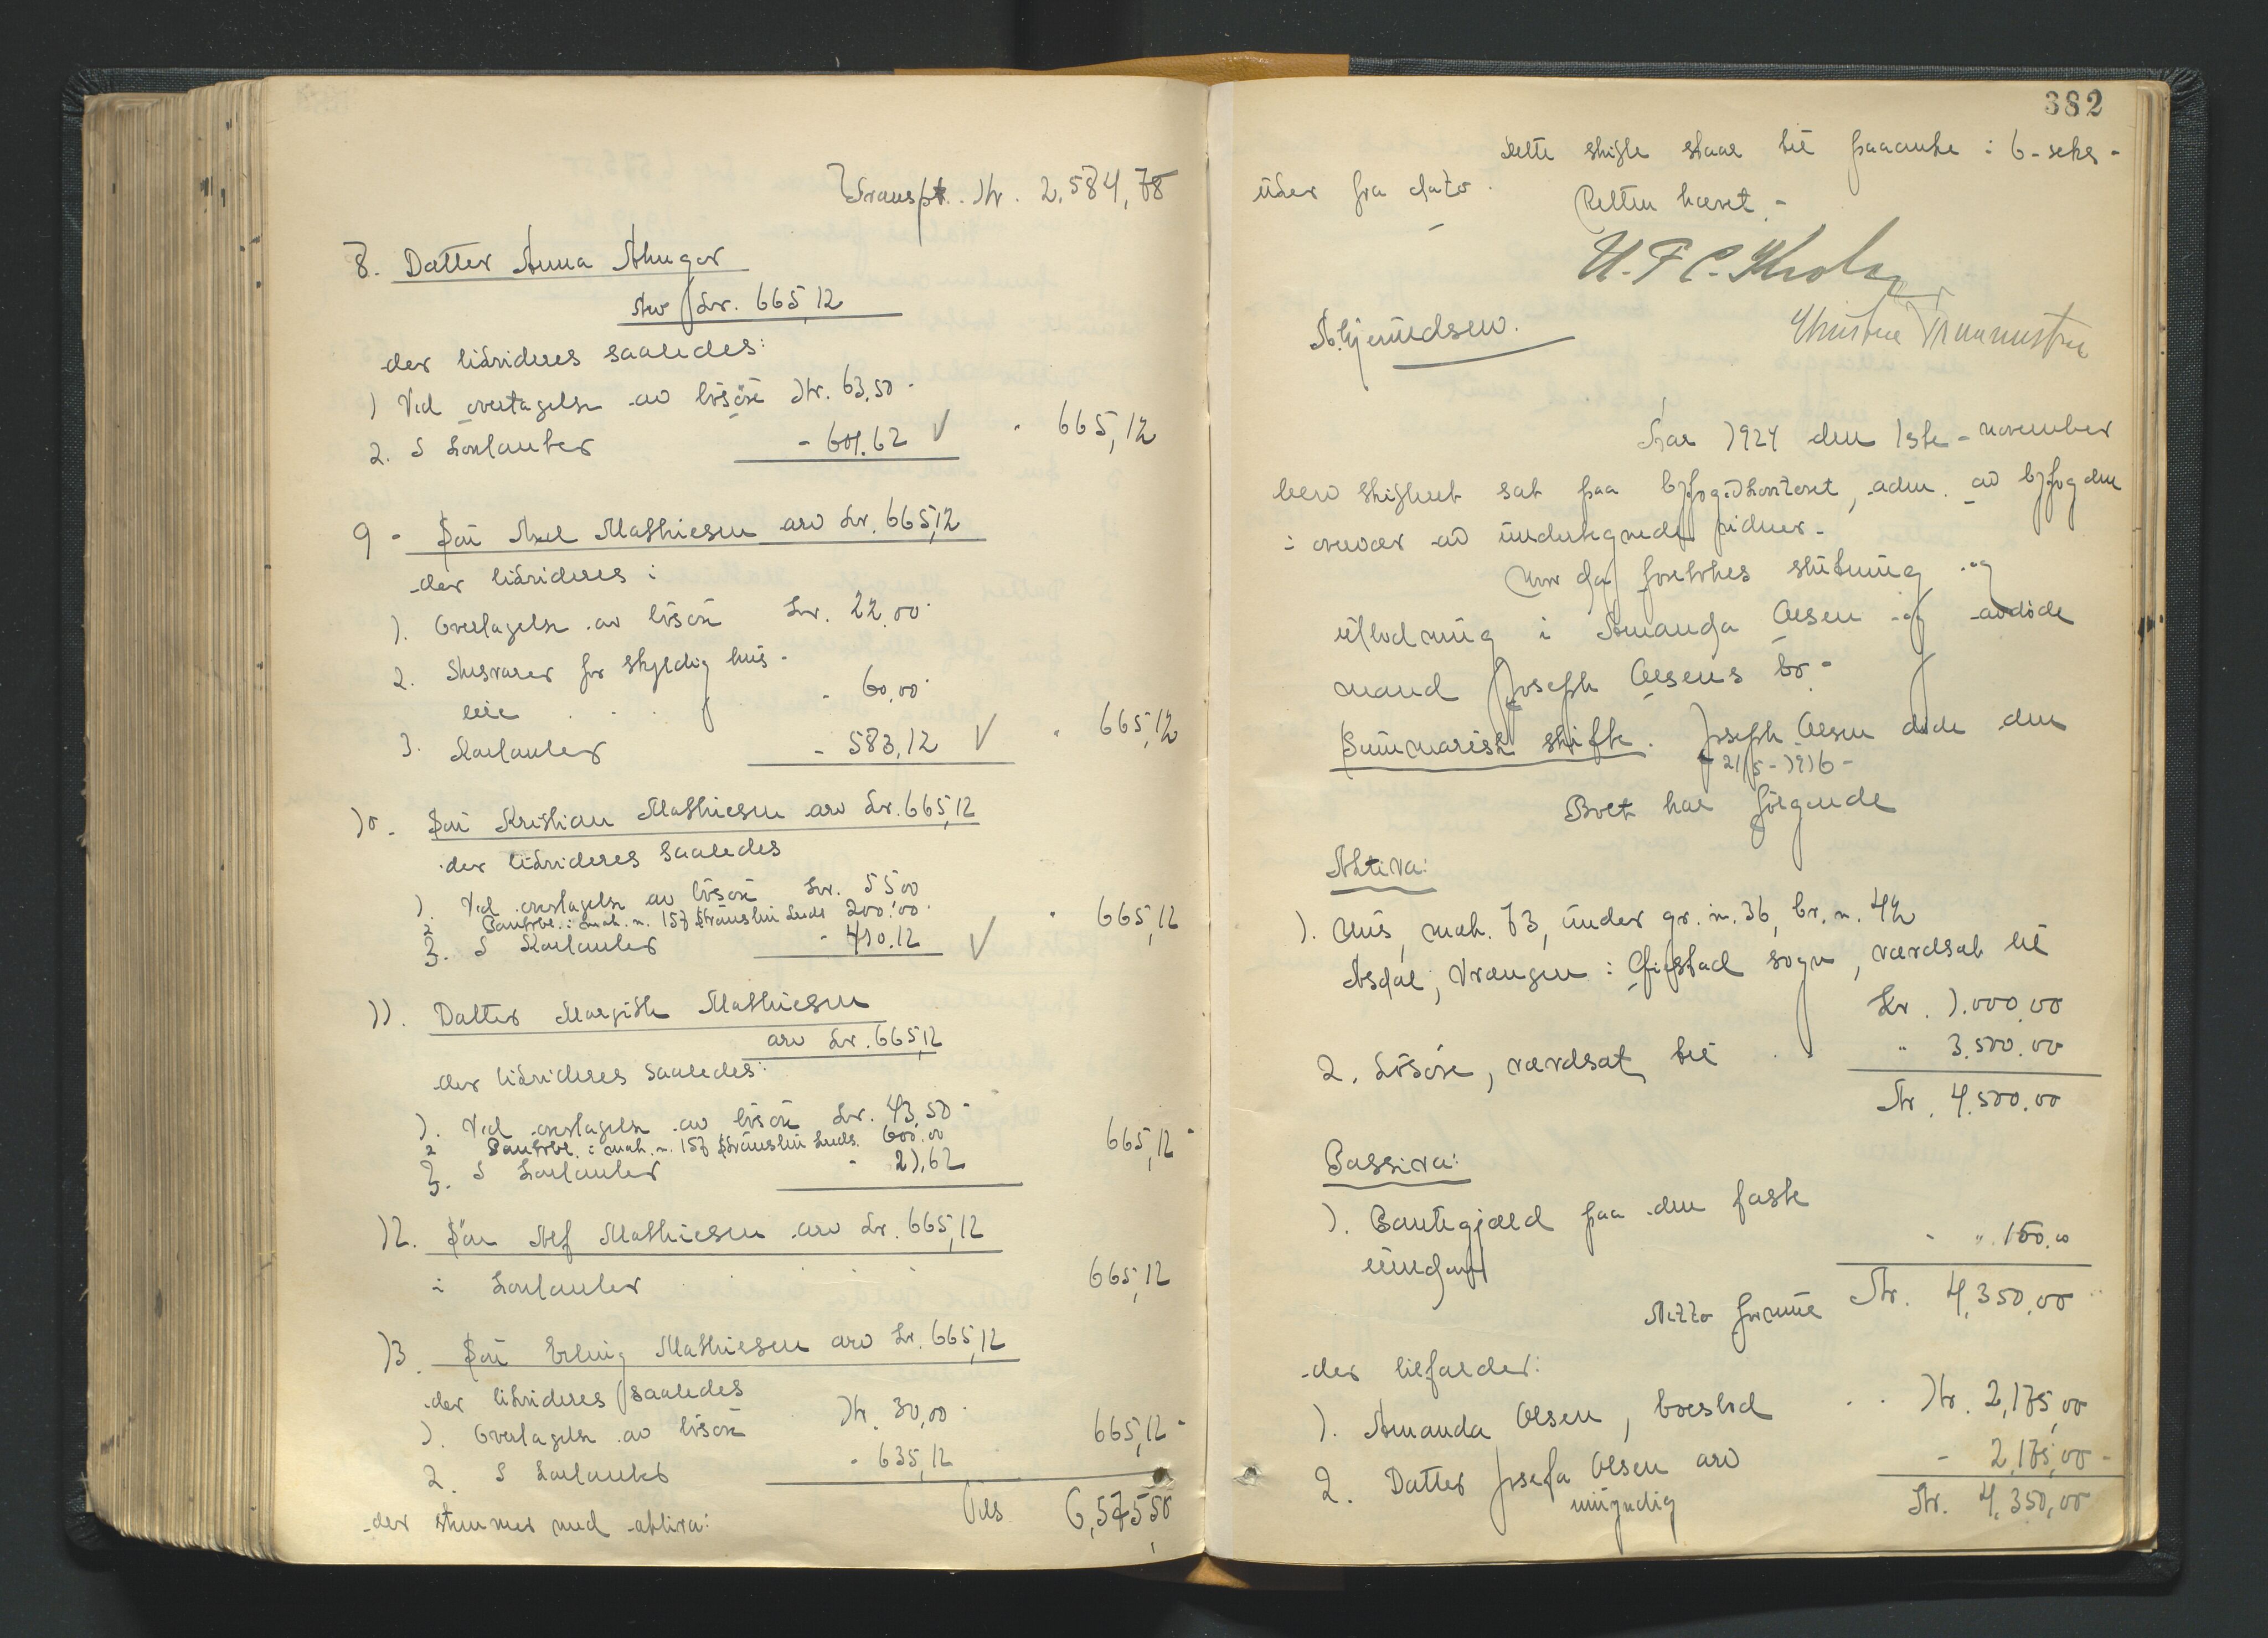 Transpt. Kr. 2,584,78
8. Datter Anna
Arv Kr. 665,12
der likvideres saaledes:
1) Ved overtagelse av lösöre Kr. 63,50
2. I kontanter - 601.62 " 665,12
9 - Sön Axel Mathiesen arv kr. 665,12
der likvideres:
1. Overtagelse av lösöre kr. 22.00
2. for skyldig hus-
leie - 60,00
3. Kontanter - 583,12 " 665,12
10. Sön Kristian Mathiesen arv kr. 665,12
der likvideres saaledes
1. Ved overtagelse av lösöre kr. 55 00
2 Panteobl. i mat. n. 157 Lunds 200.00
3. I Kontanter - 410.12 " 665,12
11. Datter Margith Mathiesen
arv kr. 665,12
der likvideres saaledes:
1. Ved overtagelse av lösöre kr. 43,50
2 Panteobl. i mat. n. 157 Lunds. 600.00
3. I kontanter - 21,62 665,12
12. Sön Alf Mathiesen arv kr. 665,12
i kontanter 665,12
13. Sön Erling Mathiesen arv kr. 665,12
der likvideres saaledes
1. Overtagelse av lösöre Kr. 30,00
2. I kontanter - 635,12 665,12
der stemmer med aktiva: Kr. 6,575 50
382
Dette skifte staar til paaanke i 6 - seks -
uker fra dato.
Retten hævet. -
Aar 1924 den 1ste - november
blev skifteret sat paa byfogdkontoret, adm. av byfogden
i overvær av undertegnede vidner.
Hvor da foretokes slutning og
utlodning i Amanda Olsen og avdöde
mand Joseph Olsens bo -
Summarisk skifte. Joseph Olsen döde den
21/5 - 1916 -
Boet har fölgende
Aktiva:
1. Hus, mat. 73, under gr. n. 36, br. n. 42
Asdal, Vrængen i sogn, værdsat til
Kr. 1.000.00
2. Lösöre, værdsat til " 3.500.00
Kr. 4.500.00
Passiva:
1. Pantegjæld paa den faste
eiendom - " 150.00
Netto formue Kr. 4,350,00
der tilfalder:
1. Amanda Olsen, boeslod Kr. 2,175,00
2. Datter Josefa Olsen arv - 2,175,00 -
myndig Kr. 4,350,00